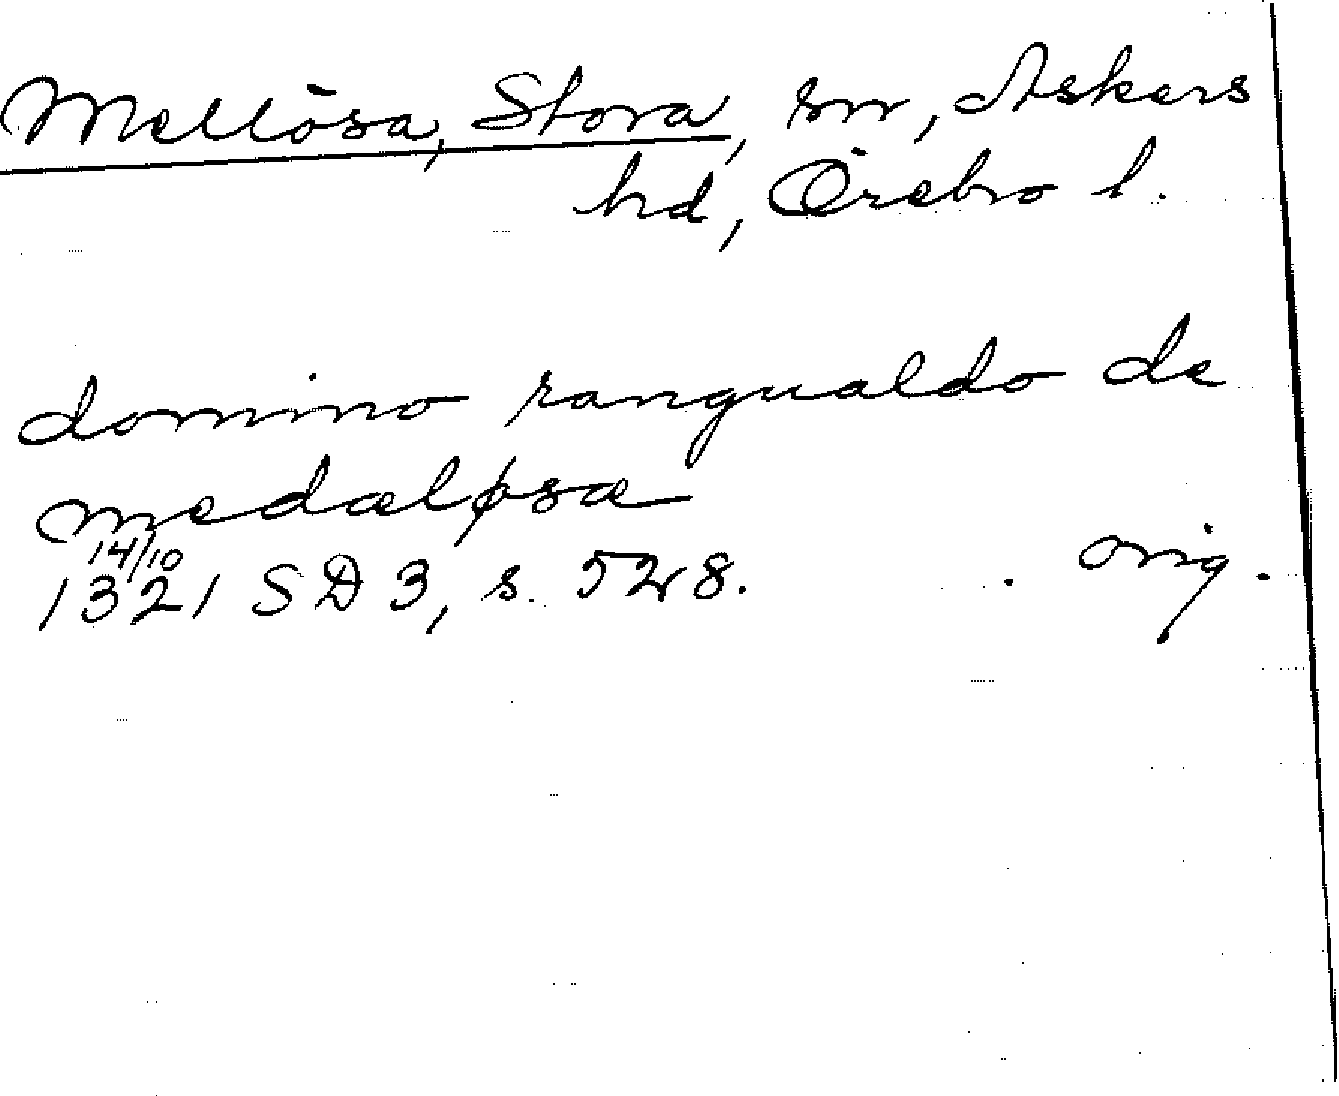 Mellösa, Stora, sn, Askers
hd, Örebro l.
domino rangualdo de
medaløsa
14/10
1321 SD 3, s. 528. orig.